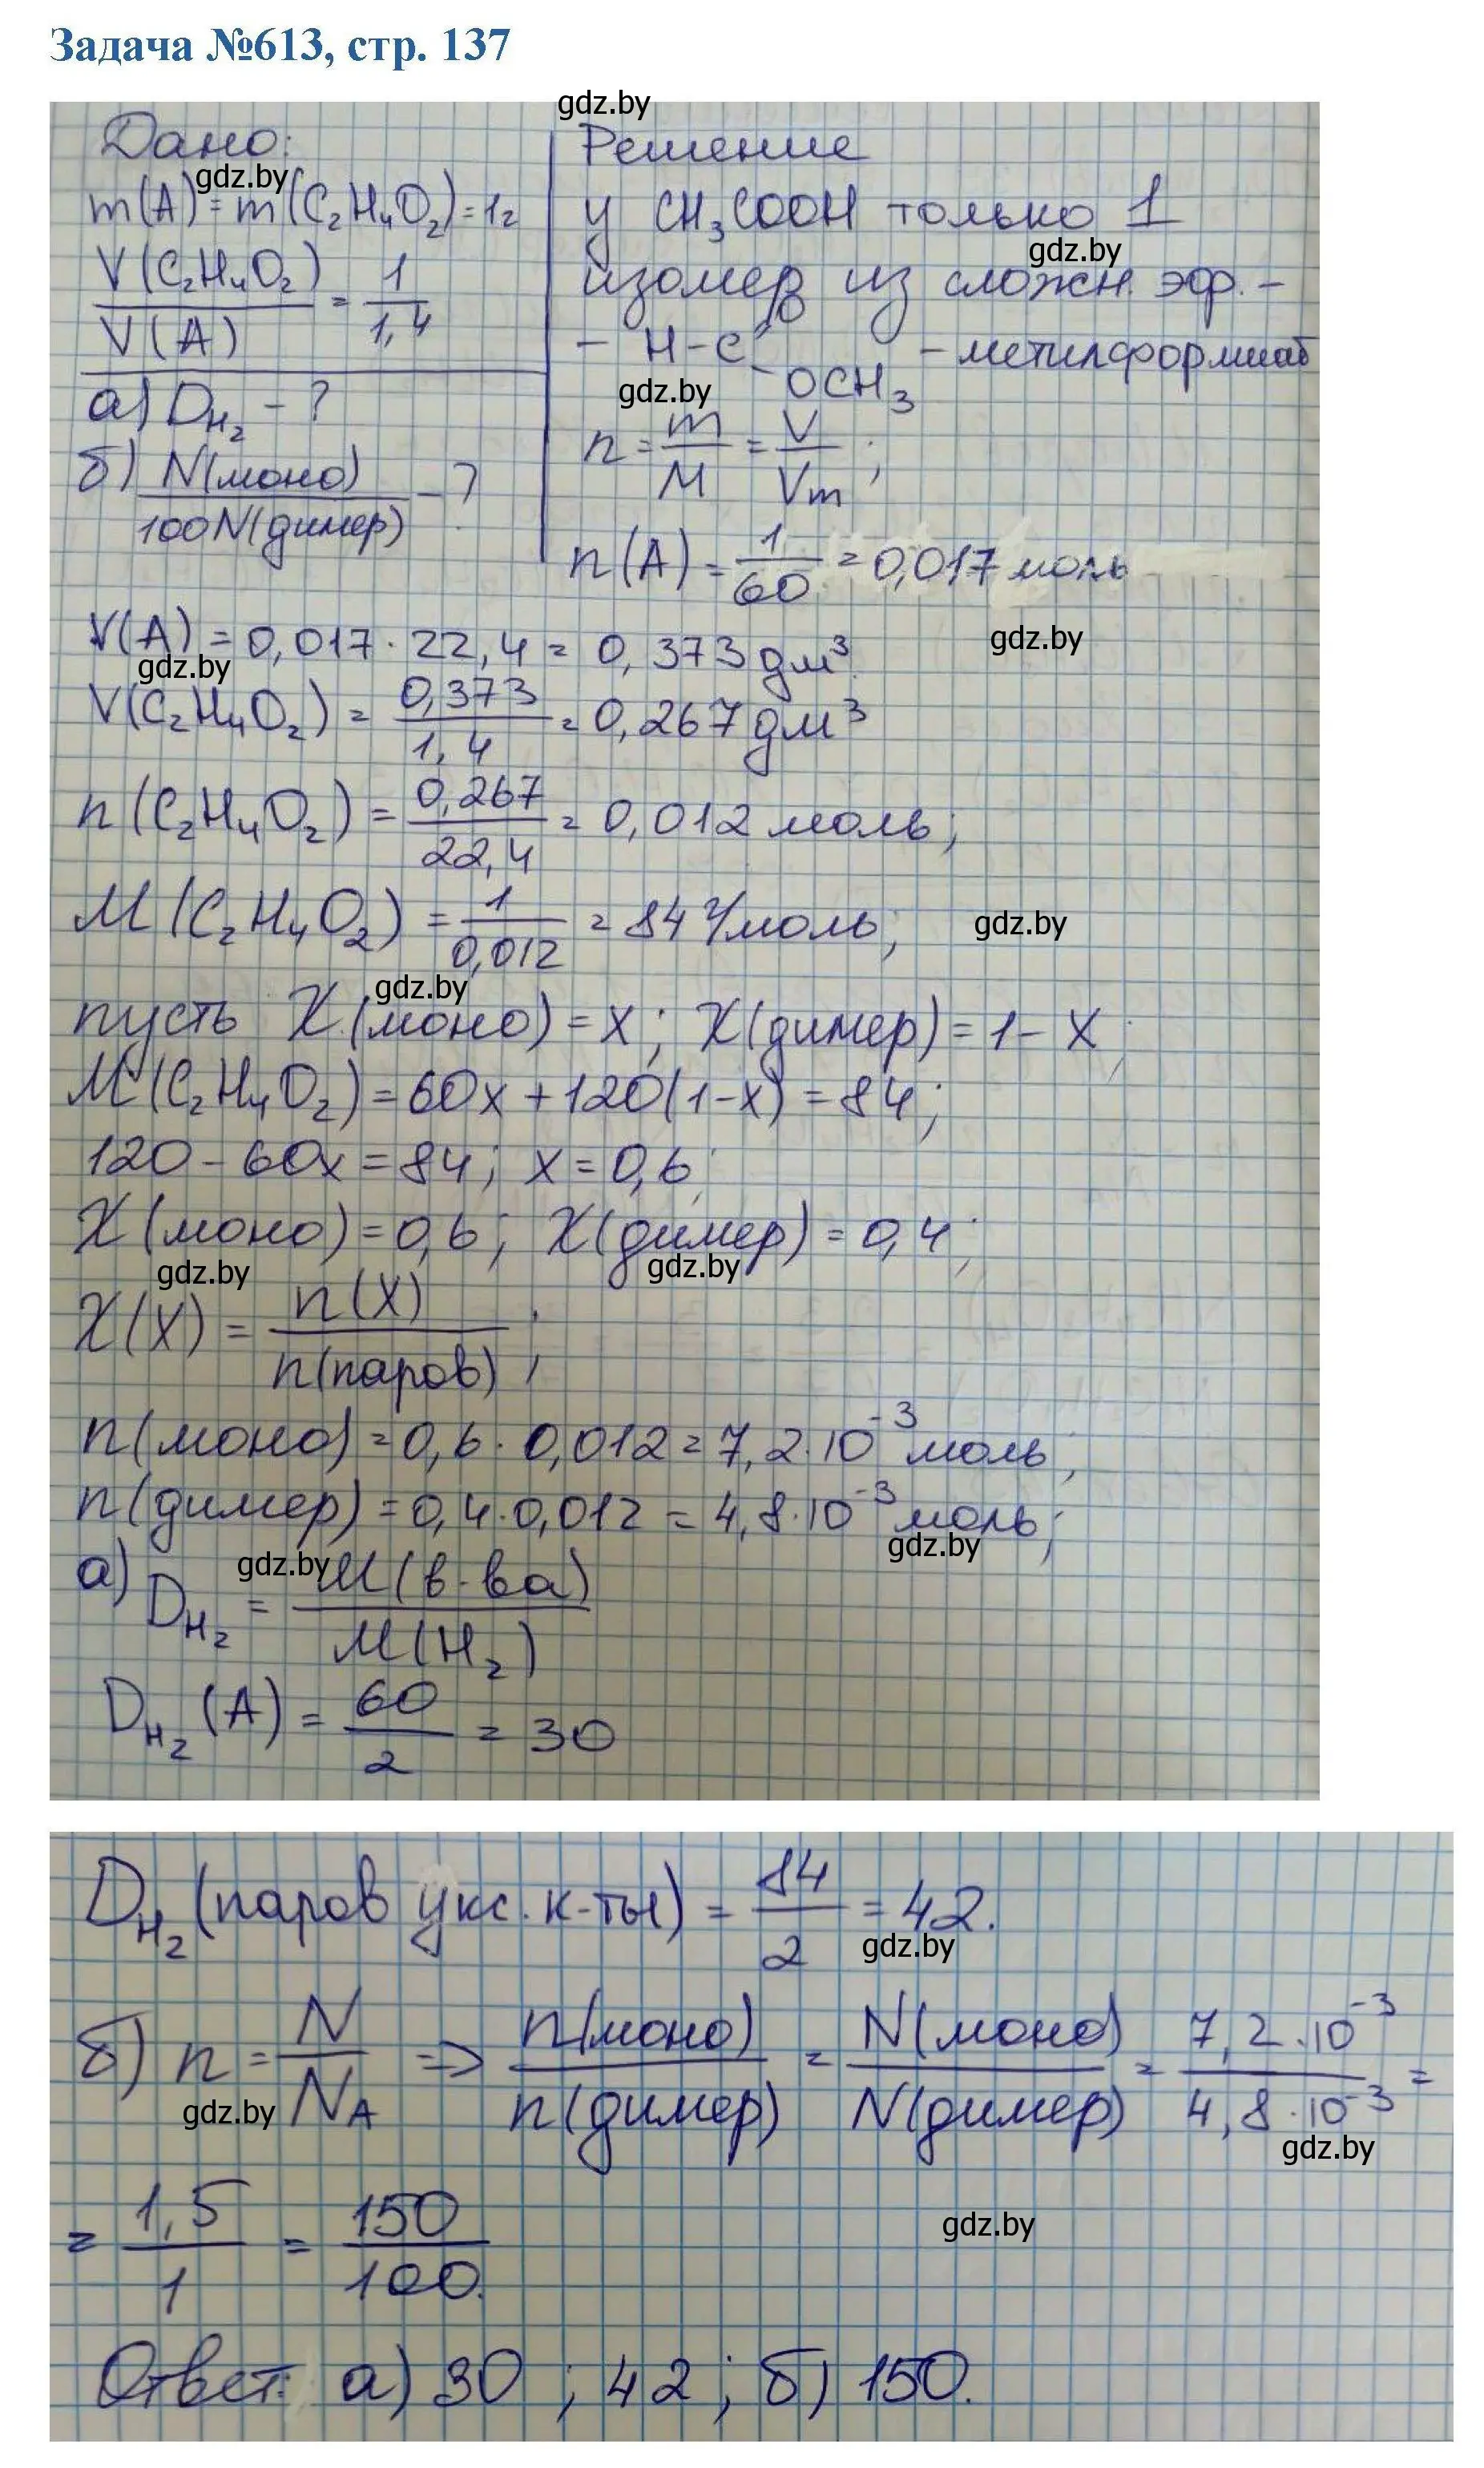 Задача №613, стр. 137
gdz.by
Дано:
gdz.by
m(A) = m(C₂H₄O₂) = 1г
V(C₂H₄O₂)/V(A) = 1/1,4
а) D_H₂ - ?
б) N(моно)/100N(димер) - ?
Решение
у CH₃COOH только 1
gdz.by
изомер из сложн. эф. -
- H-C - OCH₃ - метилформиат
gdz.by
n = m/M = V/Vm;
n(A) = 1/60 = 0,017 моль
V(A) = 0,017 · 22,4 = 0,373 дм³
gdz.by
gdz.by
V(C₂H₄O₂) = 0,373/1,4 = 0,267 дм³
n(C₂H₄O₂) = 0,267/22,4 = 0,012 моль;
M(C₂H₄O₂) = 1/0,012 = 84 г/моль;
gdz.by
gdz.by
пусть X(моно) = x; X(димер) = 1 - x;
M(C₂H₄O₂) = 60x + 120(1-x) = 84;
120 - 60x = 84; x = 0,6;
X(моно) = 0,6; X(димер) = 0,4;
gdz.by
gdz.by
X(X) = n(X)/n(паров);
n(моно) = 0,6 · 0,012 = 7,2 · 10⁻³ моль;
n(димер) = 0,4 · 0,012 = 4,8 · 10⁻³ моль;
gdz.by
gdz.by
а) D_H₂ = M(в-ва)/M(H₂)
D_H₂(A) = 60/2 = 30
D_H₂(паров укс. к-ты) = 84/2 = 42.
gdz.by
б) n = N/N_A => n(моно)/n(димер) = N(моно)/N(димер) = 7,2 · 10⁻³/4,8 · 10⁻³ =
gdz.by
gdz.by
= 1,5/1 = 150/100.
gdz.by
Ответ: а) 30; 42; б) 150.